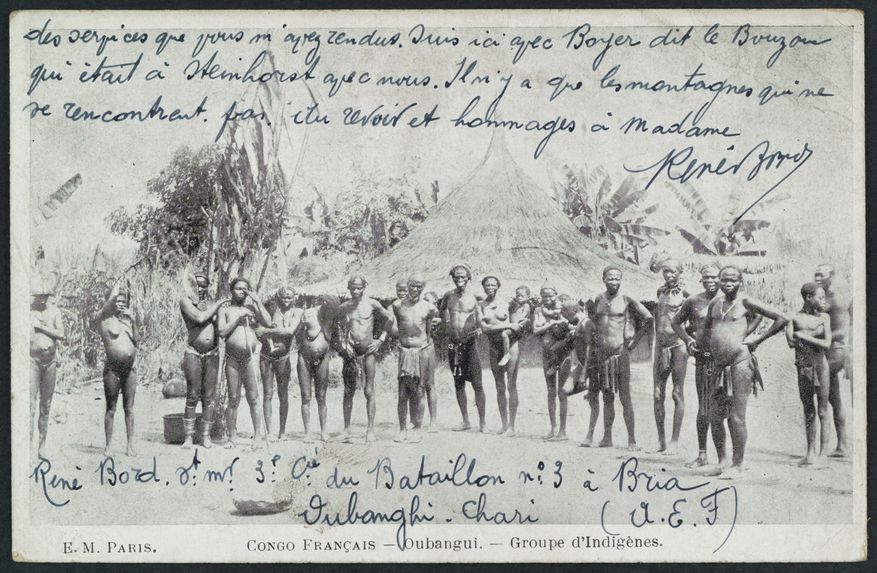 des services que vous m'avez rendus. Suis ici avec Boyer dit le Bouzou
qui était à Steinhorst avec nous. Il n'y a que les montagnes qui ne
se rencontrent pas. Au revoir et hommages à Madame
René Bord
René Bord. St mr 3e Cie du Bataillon no 3 à Bria
Oubanghi-Chari (A.E.F)
E. M. PARIS. CONGO FRANÇAIS – Oubangui. – Groupe d'Indigènes.